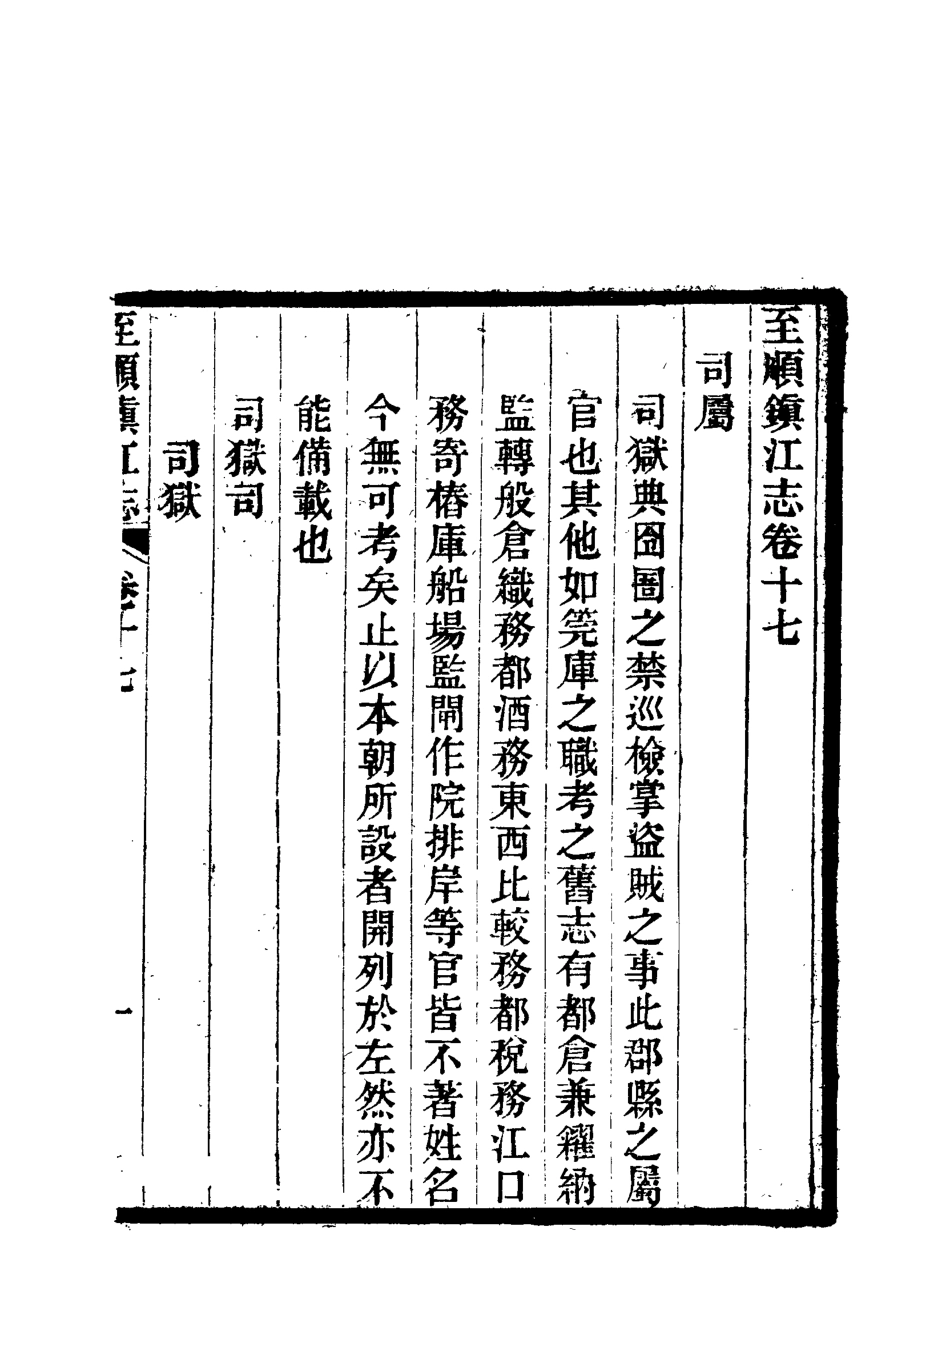 至順鎮江志卷十七
司屬
司獄典囹圄之禁巡檢掌盜賊之事此郡縣之屬
官也其他如筦庫之職考之舊志有都倉兼糴納
監轉般倉織務都酒務東西比較務都稅務江口
務寄樁庫船場監閘作院排岸等官皆不著姓名
今無可考矣止以本朝所設者開列於左然亦不
能備載也
司獄司
司獄
至順鎮江志 卷十七 一